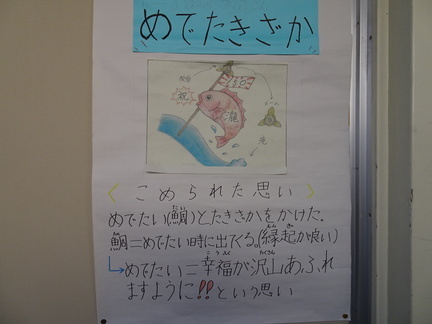 めでたきざか
祝
滝
〈こめられた思い〉
めでたい(鯛)とたきざかをかけた。
鯛＝めでたい時に出てくる。(縁起が良い)
↳めでたい＝幸福が沢山あふれ
ますように!!という思い